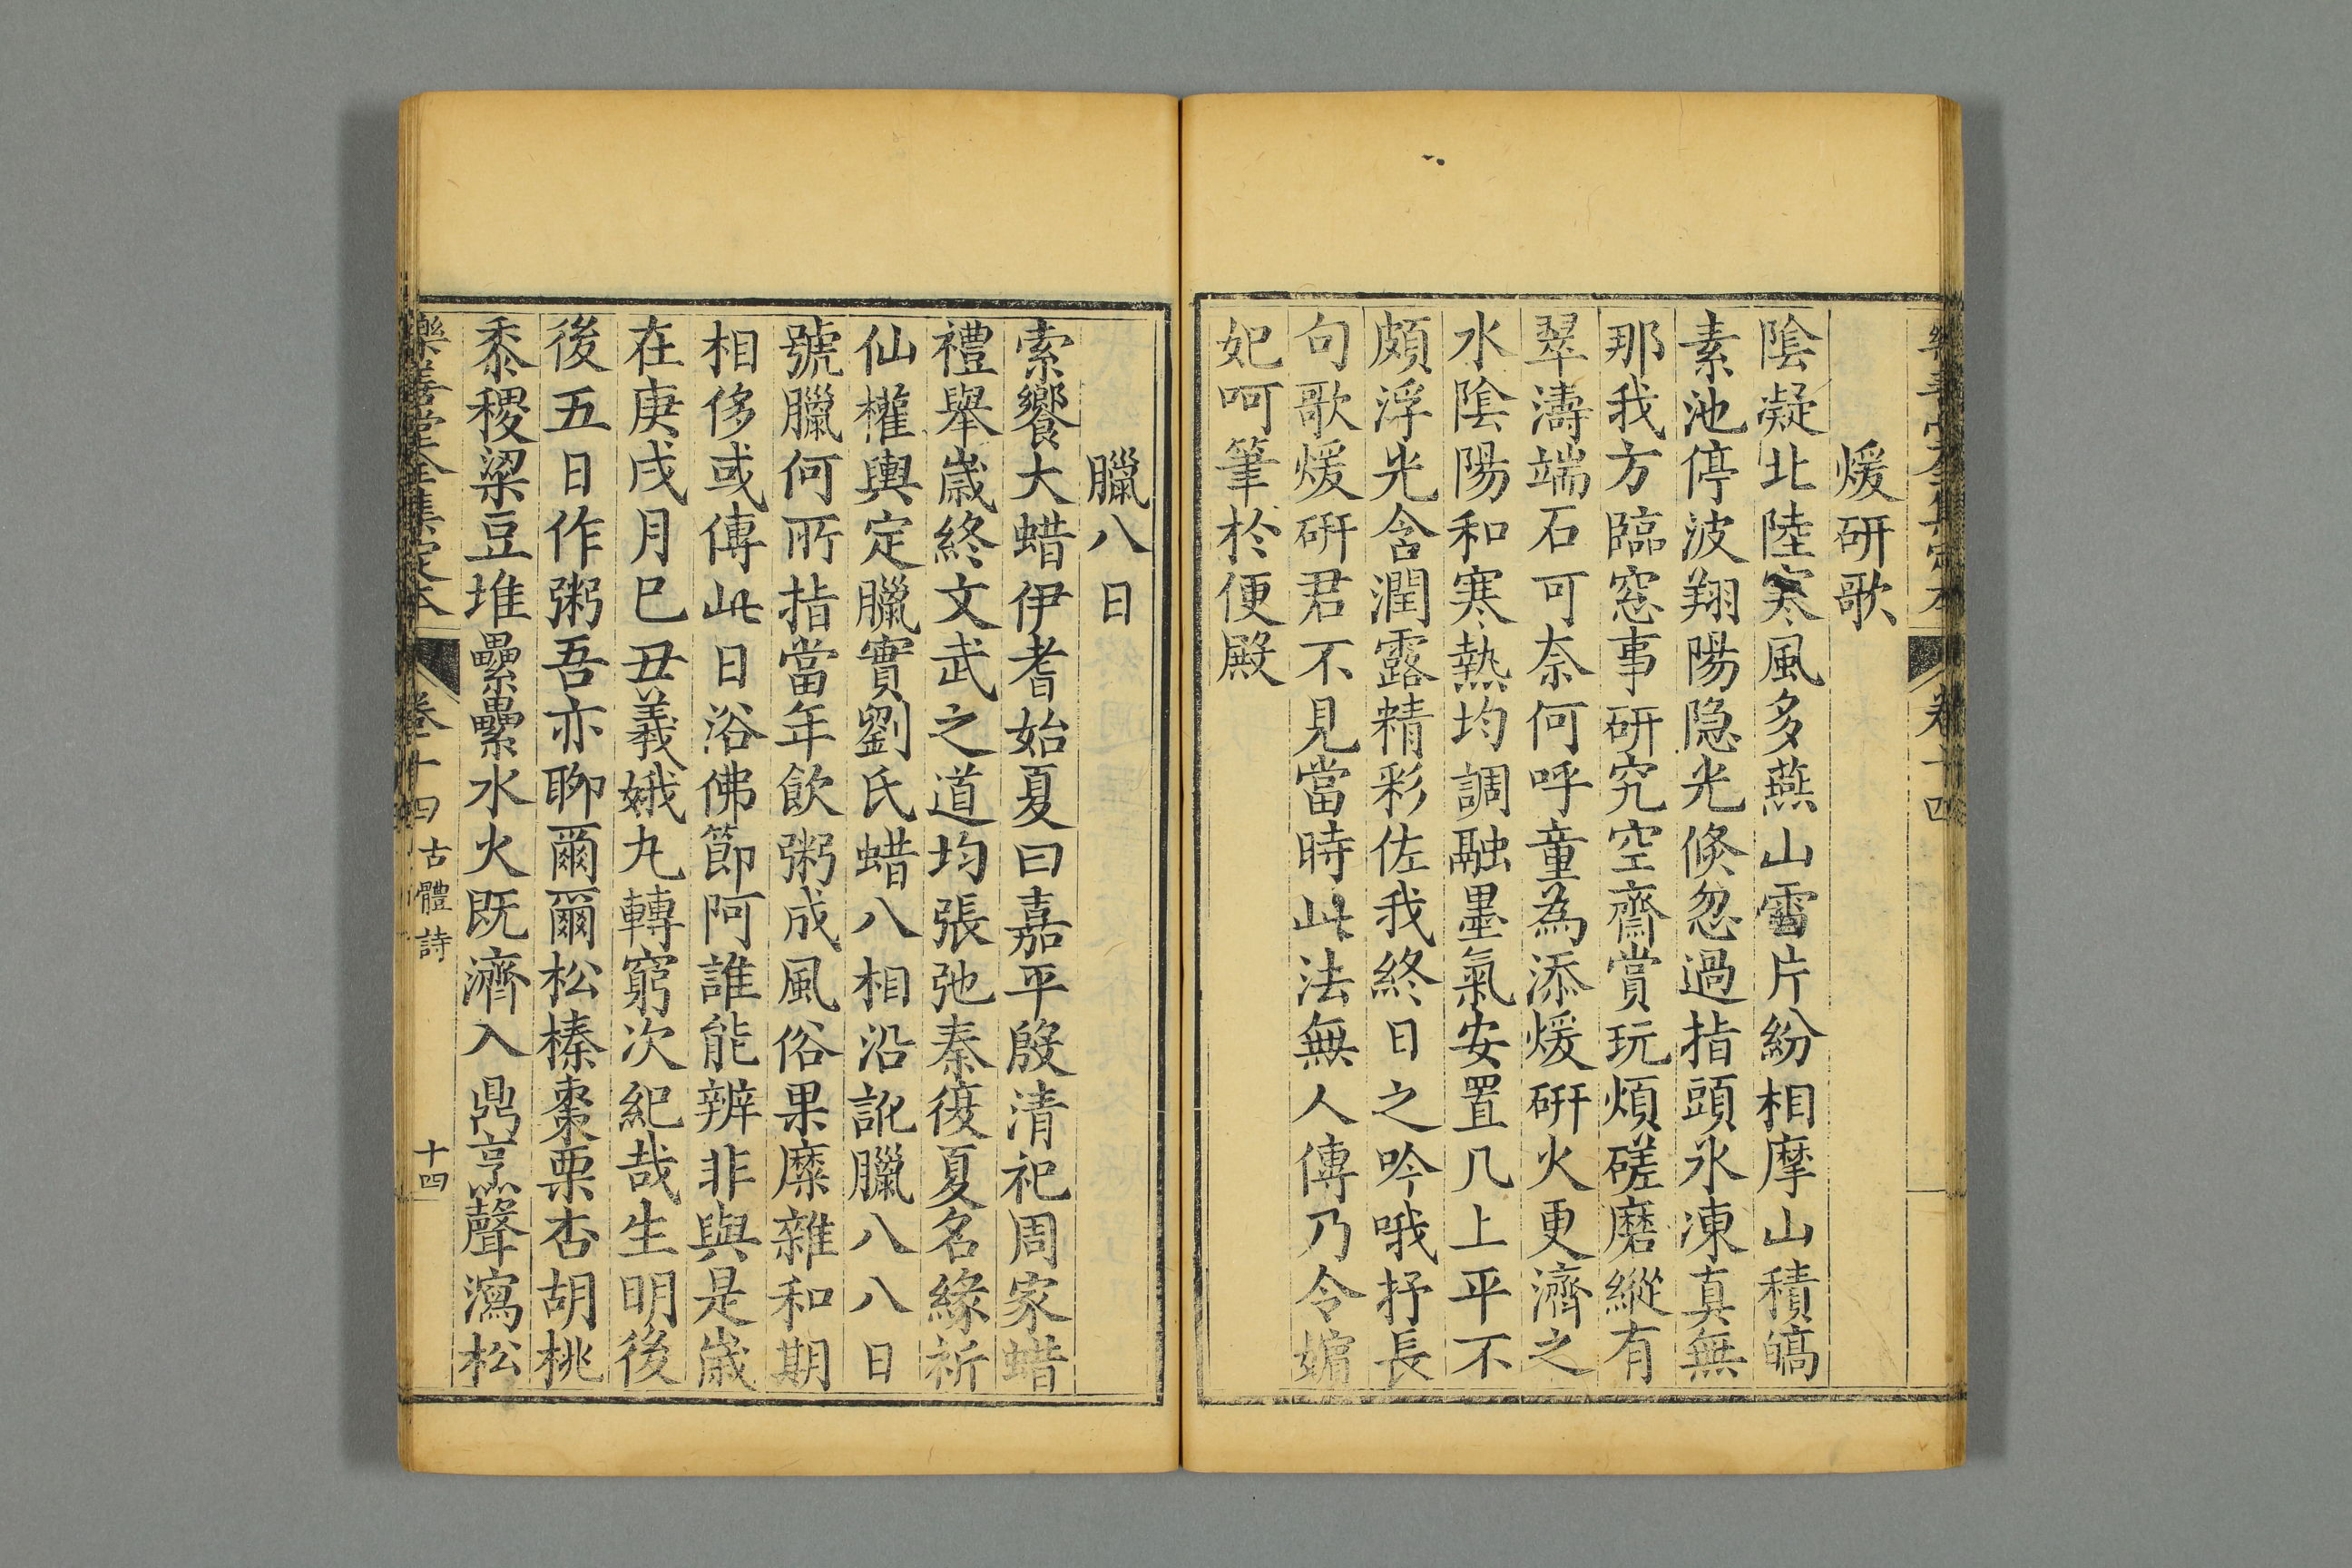 樂善堂全集定本 卷十四
煖研歌
陰凝北陸寒風多燕山雪片紛相摩山積皜
素池停波翔陽隐光倐忽過指頭氷凍真無
那我方臨窓事研究空齋賞玩煩磋磨縱有
翠濤端石可奈何呼童為添煖研火更濟之
水隂陽和寒熱均調融墨氣安置几上平不
頗浮光含潤露精彩佐我終日之吟哦抒長
句歌煖研君不見當時此法無人傳乃令媥
妃呵筆於便殿
臘八日
索饗大蜡伊耆始夏曰嘉平殷清祀周家蜡
禮舉歲終文武之道均張弛秦復夏名緣祈
仙權輿定臘實劉氏蜡八相沿訛臘八八日
號臘何所指當年飲粥成風俗果糜雜和期
相侈或傳此日浴佛節阿誰能辨非與是歲
在庚戌月巳丑羲娥九轉窮次紀哉生明後
後五日作粥吾亦聊爾爾松榛棗栗杏胡桃
黍稷粱豆堆纍纍水火既濟入鼎烹聲瀉松
樂善堂全集定本 卷十四 古體詩 十四